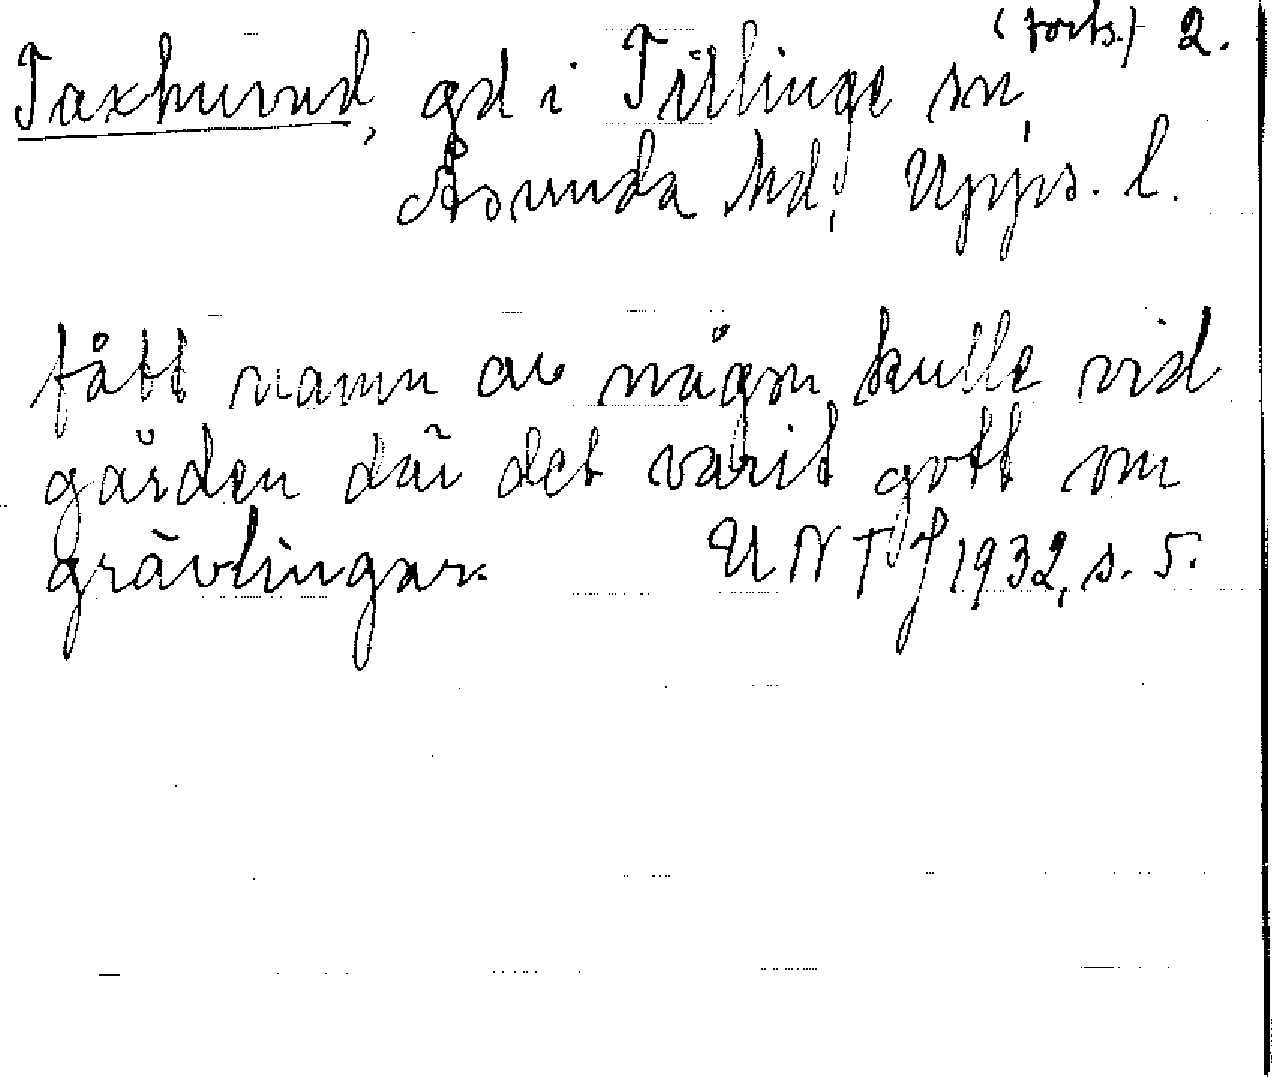 (forts.) 2.
Taxhuvud, gd i Tillinge sn,
Åsunda hd, Upps. l.
fått namn av någon kulle vid
gården där det varit gott om
grävlingar. UNT 1932, s. 5.